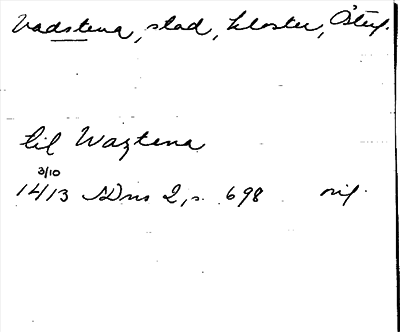 Vadstena, stad, kloster, Österg.
til Waztena
3/10
1413 SDns 2, s. 698 orig.